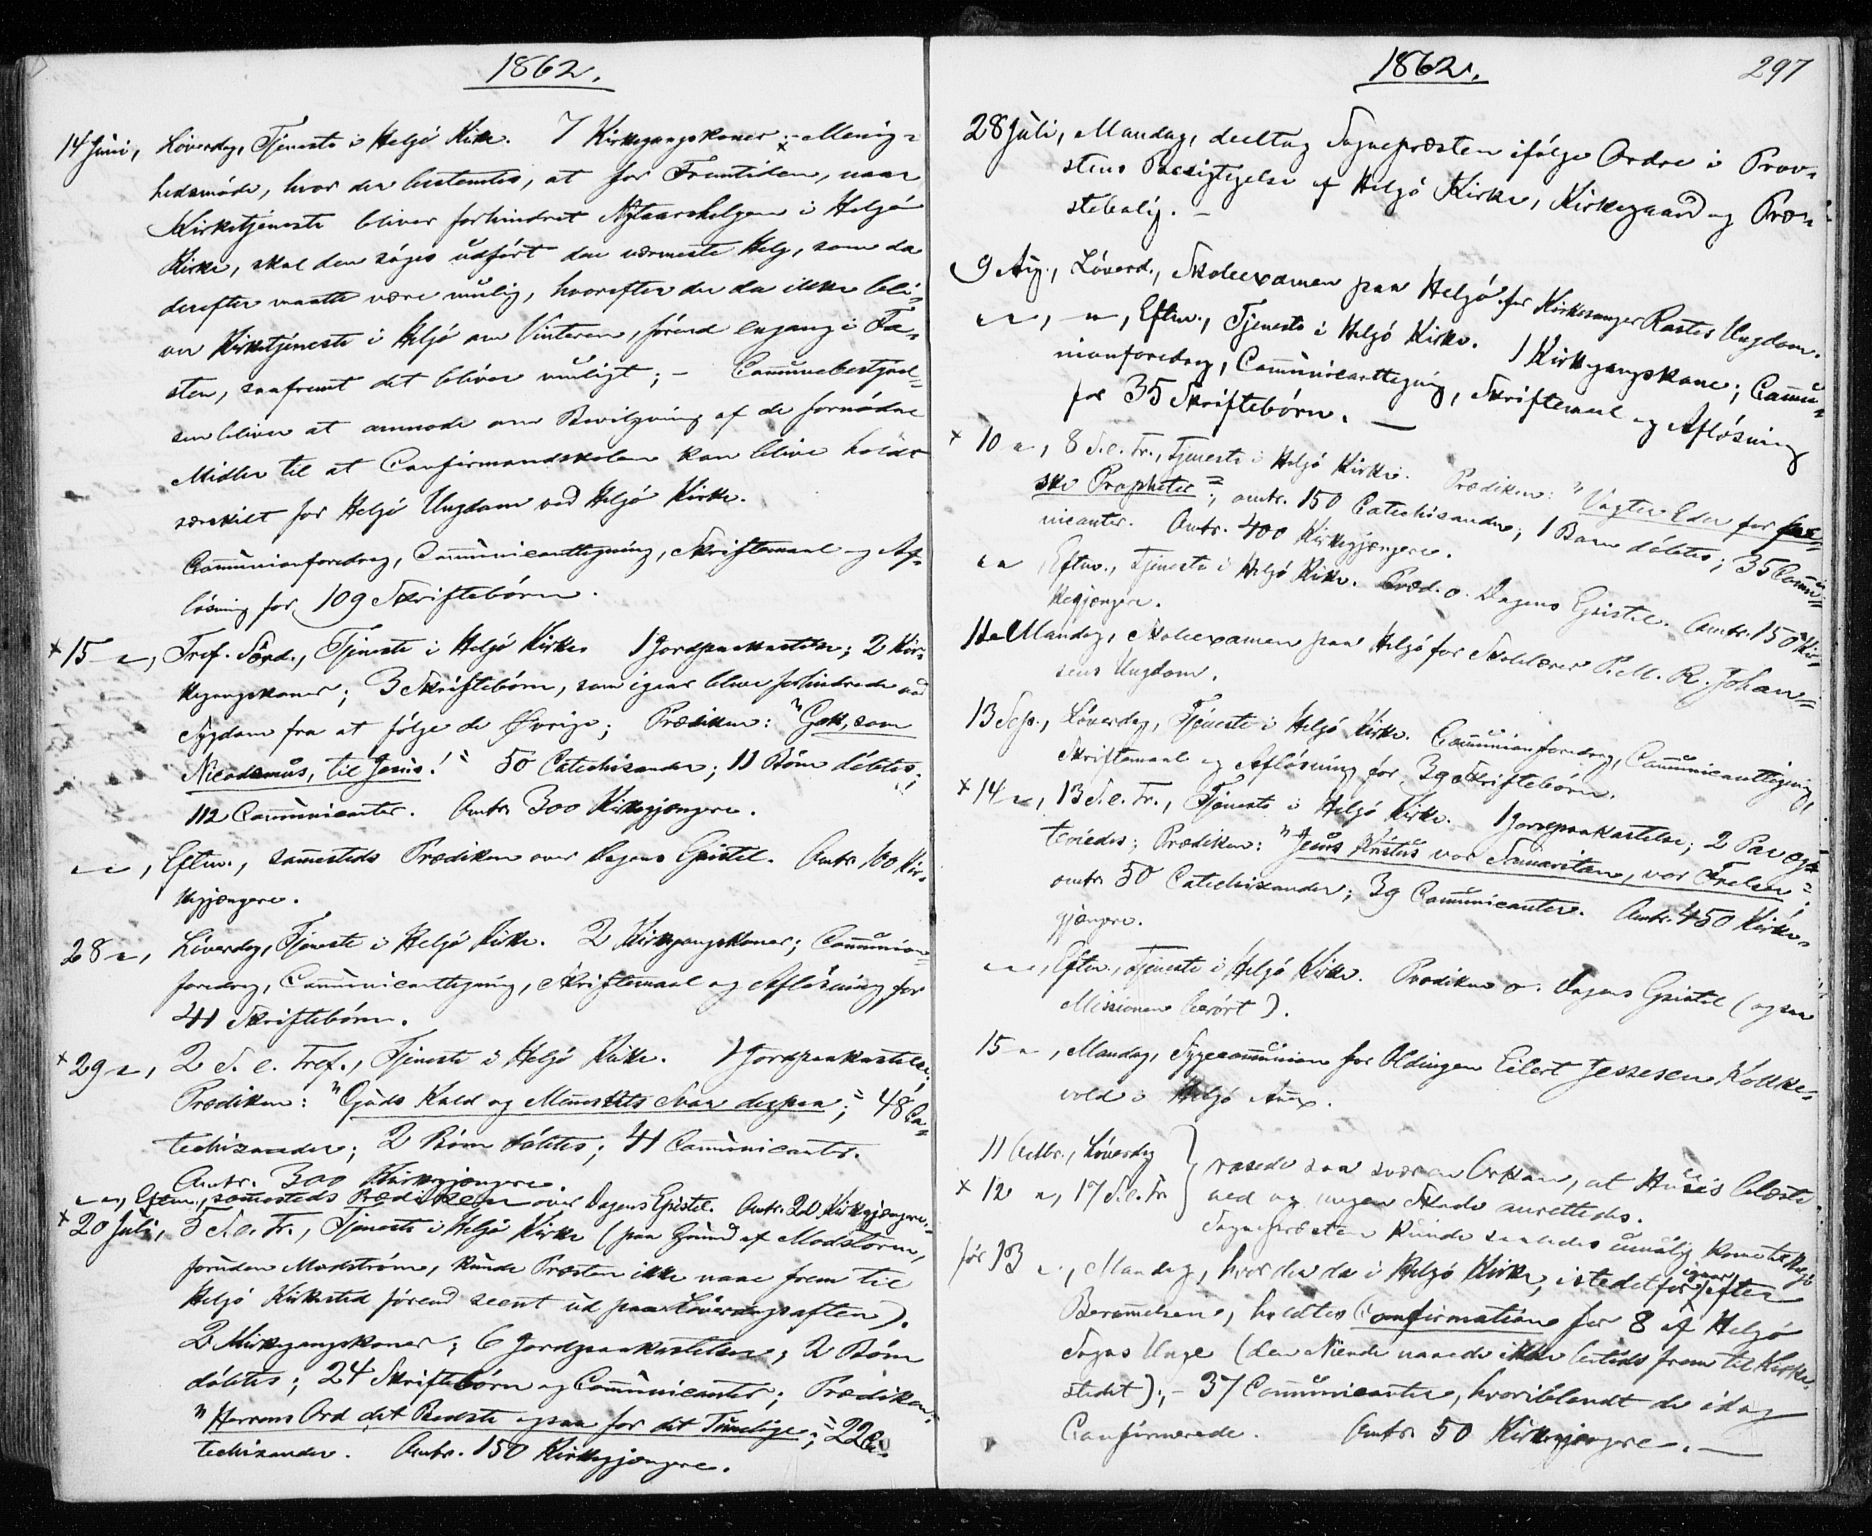 1862.
14 Juni, Löverdag, Tjeneste i Helgö Kirke. 7 Kirkegangskoner; - Menig=
hedsmöde, hvor der bestemtes, at for Fremtiden, naar
Kirketjeneste bliver forhindret Nytaarshelgen i Helgö
Kirke, skal den söges udfört den nærmeste Helg, som da
derefter maatte være mulig, hvorefter der da ikke bli=
ver Kirketjeneste i Helgö om Vinteren, förend engang i Fa=
sten, saafremt det bliver muligt; - Communebestyrel=
sen bliver at anmode om Bevilgning af de fornödne
Midler til at Confirmandskolen kan blive holdt
særskilt for Helgö Ungdom ved Helgö Kirke.
Communionforedrag, Communicanttegning, Skriftemaal og Af=
lösning for 109 Skriftebörn.
× 15 -, Tref. Sönd., Tjeneste i Helgö Kirke 1 Jordpaakastelse; 2 Kir=
kegangskoner; 3 Skriftebörn, som igaar bleve forhindrede ved
Sygdom fra at fölge de Övrige; Prædiken: "Gak, som
Nicodemus, til Jesus!" 50 Catechisander; 11 Börn döbtes;
112 Communicanter. Omtr. 300 Kirkegjængere.
- -, Efterm., sammesteds Prædiken over Dagens Epistel. Omtr. 100 Kir=
kegjængere.
28 -, Löverdag, Tjeneste i Helgö Kirke. 2 Kirkegangskoner; Communion=
foredrag, Communicanttegning, Skriftemaal og Aflösning for
41 Skriftebörn.
× 29 -, 2 S. e. Tref., Tjeneste i Helgö Kirke. 1 Jordpaakastelse;
Prædiken: "Guds Kald og Menneskets Svar derpaa;" 48 Ca=
techisander; 2 Börn döbtes; 41 Communicanter.
Omtr. 300 Kirkegjængere.
- -, Efterm., sammesteds Prædiken over Dagens Epistel. Omtr. 20 Kirkegjængere.
× 20 Juli, 5 S. e. Tr., Tjeneste i Helgö Kirke (paa Grund af Modstorm,
foruden Modström, kunde Præsten ikke naae frem til
Helgö Kirkested förend seent ud paa Löverdagsaften).
2 Kirkegangskoner; 6 Jordpaakastelser; 2 Börn
döbtes; 24 Skriftebörn og Communicanter; Prædiken:
"Herrens Ord det Bedste ogsaa for det Timelige;" 22 Ca=
techisander. Omtr. 150 Kirkegjængere.
1862. 297
28 Juli, Mandag, deeltog Sognepræsten ifölge Ordre i Prov=
stens Besigtigelse af Helgö Kirke, Kirkegaard og Præ=
stebolig. -
9 Aug., Löverd., Skoleexamen paa Helgö for Kirkesanger Rastes Ungdom.
- -, - -, Efterm., Tjeneste i Helgö Kirke. 1 Kirkegangskone; Commu=
nionforedrag, Communicanttegning, Skriftemaal og Aflösning
for 35 Skriftebörn. -
× 10 -, 8 S. e. Tr., Tjeneste i Helgö Kirke. Prædiken: "Vogter Eder for fal=
ske Propheter"; omtr. 150 Catechisander; 1 Barn döbtes; 35 Commu=
nicanter. Omtr. 400 Kirkegjængere.
- - Efterm., Tjeneste i Helgö Kirke. Præd. o. Dagens Epistel. Omtr. 150 Kir=
kegjængere.
11 - Mandag, Skoleexamen paa Helgö for Skolelærer P. M. R. Johan=
sens Ungdom.
13 Sep., Löverdag, Tjeneste i Helgö Kirke. Communionforedrag, Communicanttegning,
Skriftemaal og Aflösning for 39 Skriftebörn.
× 14 -, 13 S. e. Tr., Tjeneste i Helgö Kirke. 1 Jordpaakastelse; 2 Par ægte=
viedes; Prædiken: "Jesus Kristus vor Samaritan, vor Frelser";
omtr. 50 Catechisander; 39 Communicanter. Omtr. 450 Kirke=
gjængere.
- -, Efterm., Tjeneste i Helgö Kirke. Prædiken o. Dagens Epistel (ogsaa
Missionen berört).
15 -, Mandag, Sygecommunion for Oldingen Eilert Jessesen Kolke=
vold i Helgö Anex.
11 Octbr., Löverdag
× 12 -, 17 S. e. Tr.
rasede saa svær en Orkan, at Huse blæste
ned og megen Skade anrettedes.
Sognepræsten kunde saaledes umulig komme til Helgö
før 13 -, Mandag, hvor der da i Helgö Kirke, istedetfor igaar, efter
Berammelsen, holdtes Confirmation for 8 af Helgö
Sogns Unge (den Niende naaede ikke betids frem til Kirke=
stedet); - 37 Communicanter, hvoriblandt de idag
Confirmerede. Omtr. 50 Kirkegjængere. -